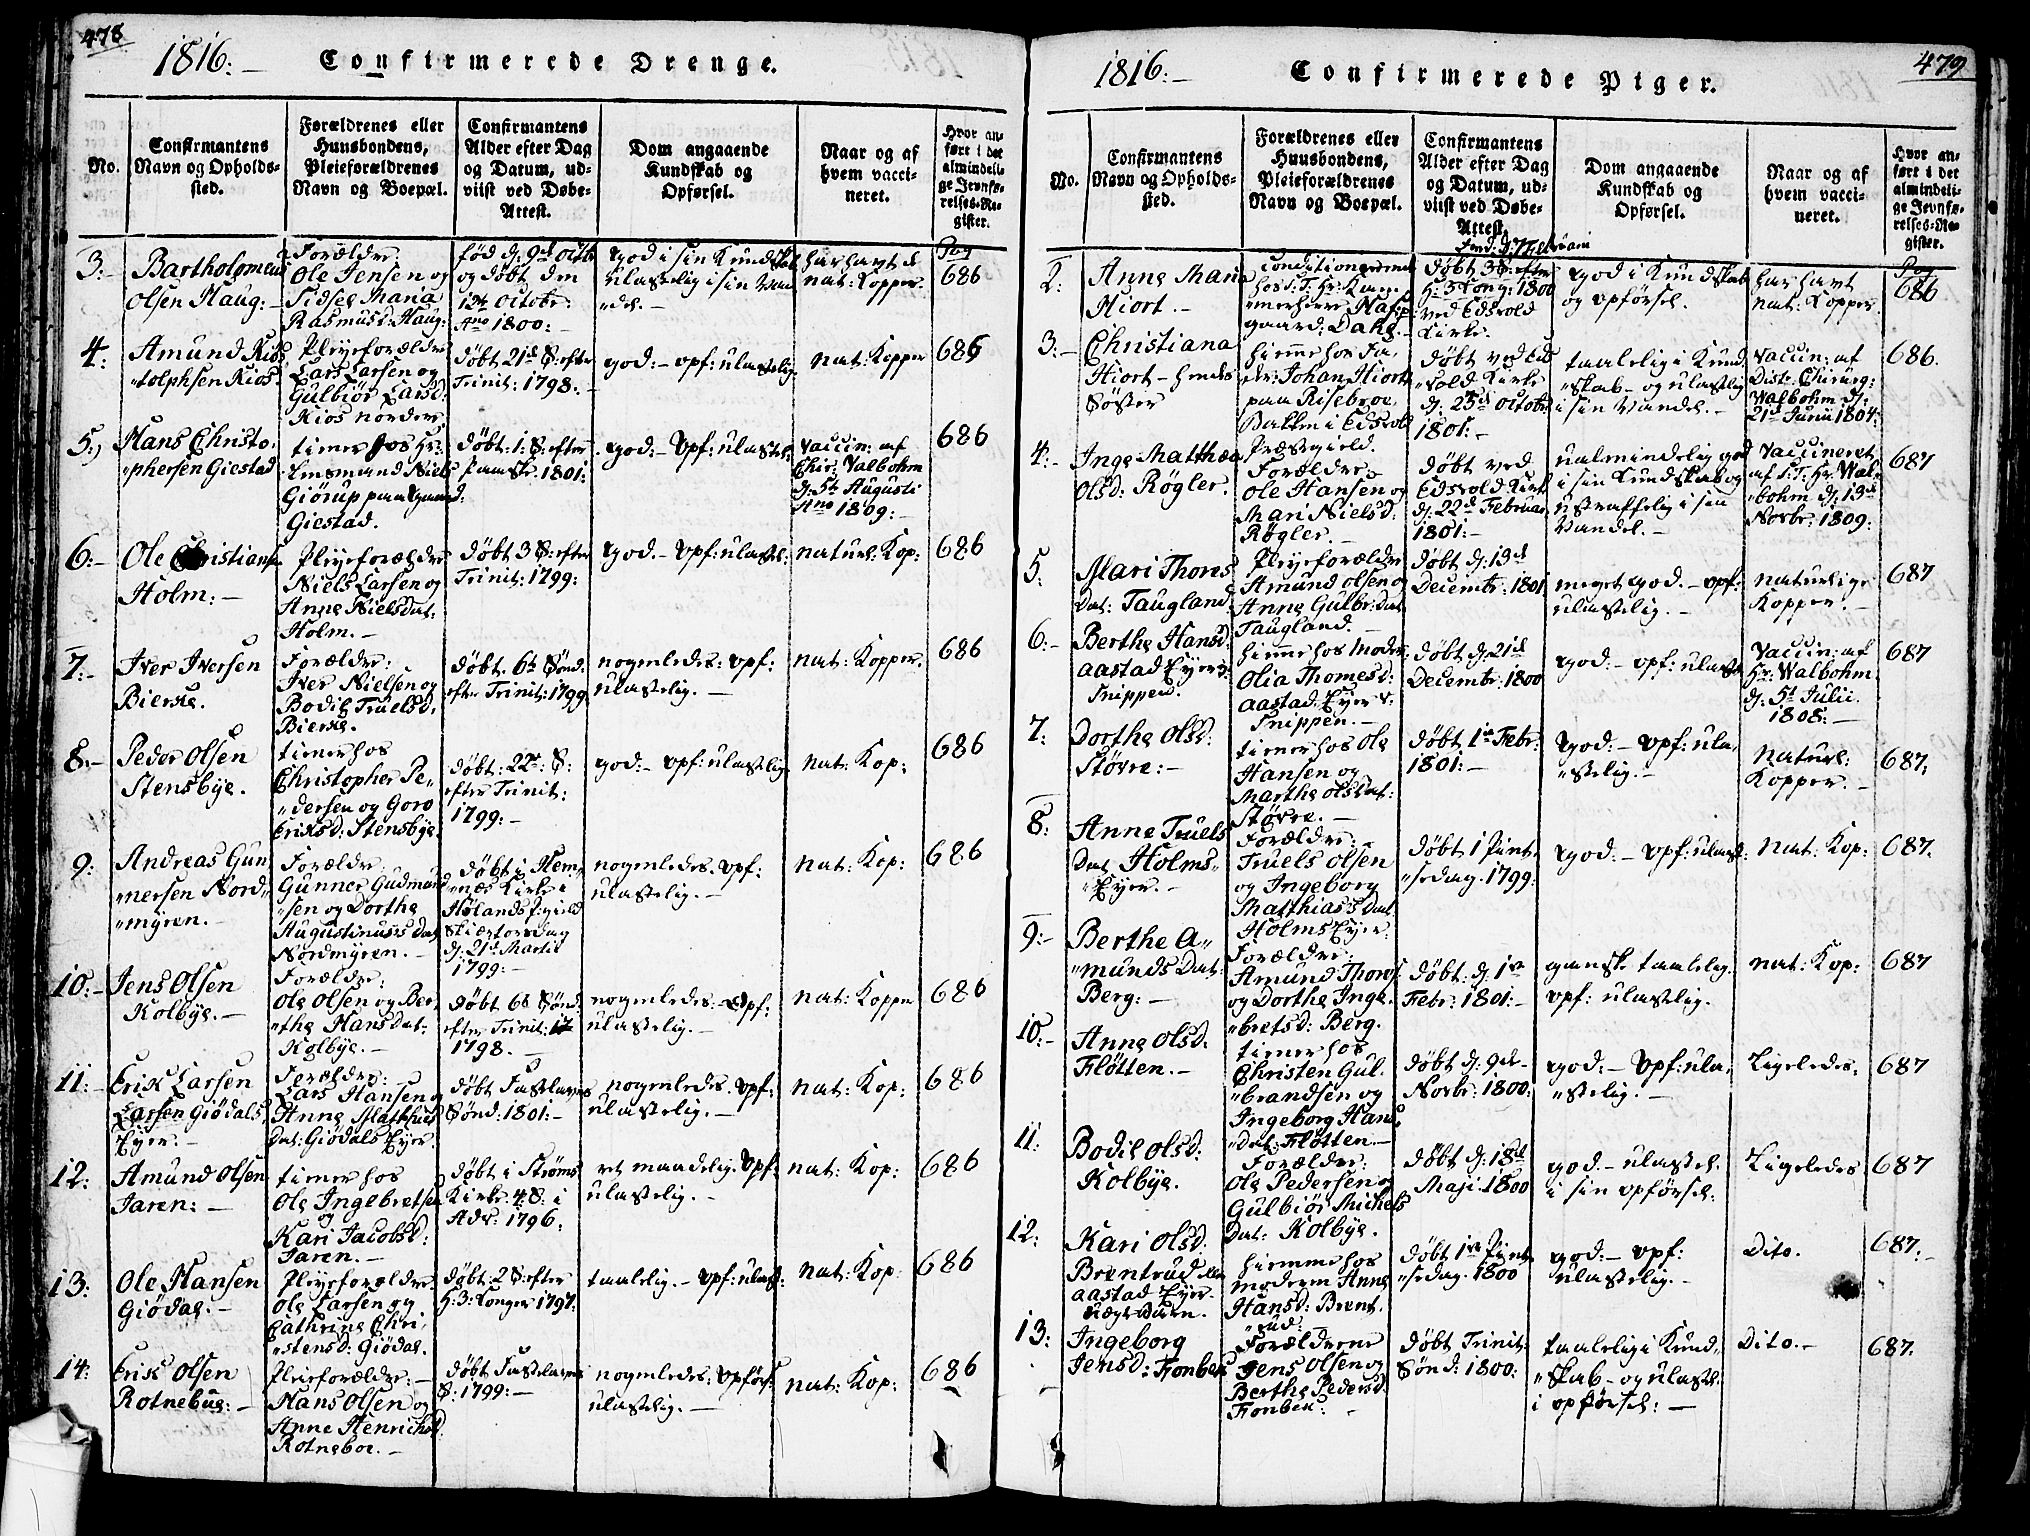 478
1816:—
Confirmerede Drenge.
No.
Confirmantens
Navn og Opholds-
sted.
Forældrenes eller
Huusbondens,
Pleieforældrenes
Navn og Boepæl.
Confirmantens
Alder efter Dag
og Datum, ud-
viist ved Døbe-
Attest.
Dom angaaende
Kundskab og
Opførsel.
Naar og af
hvem vacci-
neret.
Hvor an-
ført i det
almindeli-
ge Jevnfø-
relses-Re-
gister.
3:-
Bartholomeus
Olsen Haug:-
Forældre:
Ole Jensen og
Sidsel Maria
Rasmusd: Haug:
fød d: 9de Octb
og døbt den
12te Octobr:
Ano 1800:-
god i sin Kundskab
ulastelig i sin Van
"del.-
har havt de
nat: Kopper.
Pag
686
4:
Amund Kris
"tolphsen Kios
Pleyeforældre
Lars Larsen og
Gulbiør Larsd:
Kios nordere
døbt 21de S: efter
Trinit: 1798.-
god:- opf: ulastelig
nat: Kopper
686
5:)
Hans Christo,
"phersen Giestad
tiener hos Hr:
Lensmand Niels
Giørup paa Gaard
Giestad.
døbt: 1: S: efter
Paaske: 1801.
god:- Opf: ulastel:
Vaccin: af
Chir: Walbohm
d: 5te Augusti
Ano 1809:-
686
6:-
Ole Christians.
Holm:-
Pleyeforældre
Niels Larsen og
Anne Nielsdat:
Holm.-
døbt 3 S: efter
Trinit: 1799:
god.- Opf: ulastel:
naturl: Kop:
686
7:-
Iver Iversen
Bierke.
Forældre:
Iver Nielsen og
Bodil Truelsd:
Bierke.
døbt: 6te Sønd:
efter Trinit: 1799
nogenledes: Opf:
ulastelig.-
nat: Kopper.
686
8:-
Peder Olsen
Stensbye.
tiener hos
Christopher Pe-
"dersen og Goro
Eriksd: Stensbye.
døbt: 22de: S:
efter Trinit:
1799:-
god:- opf: ulastelig
nat: Kop:
686
9:
Andreas Gun
"nersen Nord,
"myren.-
Forældre:
Gunner Gudmund
"sen og Dorthe
Augustinusdat
Nordmyren.-
døbt i Hem,
"nes Kirke i
Hølands P:gield
Skiærtorsdag
d: 21de Martii
1799:-
nogenledes. Opf:
ulastelig.-
nat: Kop:
686
10:-
Jens Olsen
Kolbye.-
Forældre:
Ole Olsen og Ber-
"the Hansdat:
Kolbye.-
døbt 6te Sønd:
efter Trinit:
1798.-
nogenledes:- Opf:
ulastelig.-
nat: Kopper
686
11:-
Erik Larsen
Larsen Giødals,
Eyer.-
Forældre:
Lars Hansen og
Anne Matthis
Dat: Giødals Eyer.
døbt Fastelavns
Sønd: 1801:-
nogenledes. Opf:
ulastelig.-
nat: Kop:
686
12:
Amund Olsen
Jaren:-
tiener hos
Ole Ingebretsen
og
Kari Jacobsd:
Jaren.-
døbt i Strøms
Kirke 4 S: i
Adv: 1796:
ret maadelig. Opf:
ulastelig.-
nat: Kop:
686
13:
Ole Hansen
Giødal:-
Pleyeforældre:
Ole Larsen og
Cathrine Chri,
"stensd: Giødal.
døbt: 2 S: efter
H: 3: Konger 1797.
taalelig.- opf: ulast:
nat: Kop:
686
14:
Erik Olsen
Rotnebue:-
Pleieforældre:-
Hans Olsen og
Anne Henrichsd
Rotneboe.-
døbt Fastelavns
S: 1799:-
nogenledes: Opførs:
ulastelig.-
nat: Kop:
686
479
1816:-
Confirmerede Piger.
No.
Confirmantens
Navn og Opholds-
sted.
Forældrenes eller
Huusbondens,
Pleieforældrenes
Navn og Boepæl.
Confirmantens
Alder efter Dag
og Datum, ud-
viist ved Døbe-
Attest.
Dom angaaende
Kundskab og
Opførsel.
Naar og af
hvem vacci-
neret.
Hvor an-
ført i det
almindeli-
ge Jevnfø-
relses-Re-
gister.
2:
Anne Maria
Hiort.-
Conditionerende
hos S: T: Hr: Kam
merherre
gaard: Dahl.-
døbt 3 S: efter
H: 3 Kong: 1800
ved Eidsvold
Kirke.
god i Kundskab
og opførsel.
har havt
nat: Kopper
Pag
686
3:-
Christiana
Hiort- hendes
Søster
hiemme hos Fa-
der: Johan Hiort
paa Risebroe,
Bakken i Eidsvold
Præstegield.
døbt ved Eid
"svold Kirke
d: 25de Octobr
1801:-
taalelig i Kund,
"skab- og ulastelig
i sin Vandel.-
Vaccin: af
Distr: Chirurg:
Walbohm d:
21de Junii 1804:
686.
4:-
Inge Matthea
Olsd: Røgler.
Forældre
Ole Hansen og
Mari Nielsd:
Røgler.-
døbt ved
Eidsvold Kirke
d: 22de Februar
1801:-
ualmindelig god
i sin Kundskab og
ustraffelig i sin
Vandel.-
Vaccineret
af S: T: Hr: Wal,
"bohm d: 13de
Novbr: 1809:
687
5:
Mari Thores
Dat: Taugland.
Pleyeforældre
Amund Olsen og
Anne Gulbr: dat
Taugland.-
døbt d: 13de
Decembr: 1801
meget god.- opf:
ulastelig.-
naturlige
Kopper.-
687
6:-
Berthe Hansd:
Aastad Eyer v:
Snippen.
hiemme hos Moder:
Olia Thomesd:
Aastad: Eyer v:
Snippen.-
døbt d: 21de
Decembr: 1800
god:- opf: ulast:
Vaccin: af
Hr: Walbohm
d: 5te Julii
1808:-
687
7:
Dorthe Olsd:
Større:-
tiener hos Ole
Hansen og
Marthe Olsdat:
Større.-
døbt 1te Febr:
1801:-
god:- opf: ula,
"stelig.-
Naturl:
Kopper.-
687.
8:
Anne Truels
Dat Holms-
"Eyer.-
Forældre:
Truels Olsen
og Ingeborg
Matthias's Dat.
Holms Eyer:
døbt 1 Pint,
"sedag. 1799:
god:- opf: ulast:
Nat: Kop:
687.
9:-
Berthe A-
"munds Dat:
Berg:-
Forældre:
Amund Thores
og Dorthe Inge.
"bretsd: Berg.
døbt: d: 1te
Febr: 1801:-
ganske taalelig.
opf: ulastelig.
nat: Kop:
687
10:-
Anne Olsd:
Fløtten.-
tiener hos
Christen Gul.
"brandsen og
Ingeborg Hans
"dat: Fløtten.-
døbt d: 9de
Novbr: 1800:
god:- Opf: ula,
"stelig.-
Ligeledes.
687
11:
Bodil Olsd:
Kolbye.
Forældre:
Ole Pedersen og
Gulbiør Michels
Dat: Kolbye.
døbt d: 18de
Maji 1800
god.- ulastel.
i sin opførsel:
Ligeledes
687
12:
Kari Olsd:
Brentrud
Aastad Eyer.
hiemme hos
Moderen Anne
Hansd: Brent,
"rud:
døbt 1te Pint,
"sedag. 1800
god:- opf:
ulastelig.-
Dito.
687.
13:
Ingeborg
Jensd: Fonbek
Forældrene
Jens Olsen og
Berthe Pedersd
Fonbek:-
døbt Trinit:
Sønd: 1800:
taalelig i Kund,
"skab- og ulastel.
i opførsel:-
Dito.-
687.